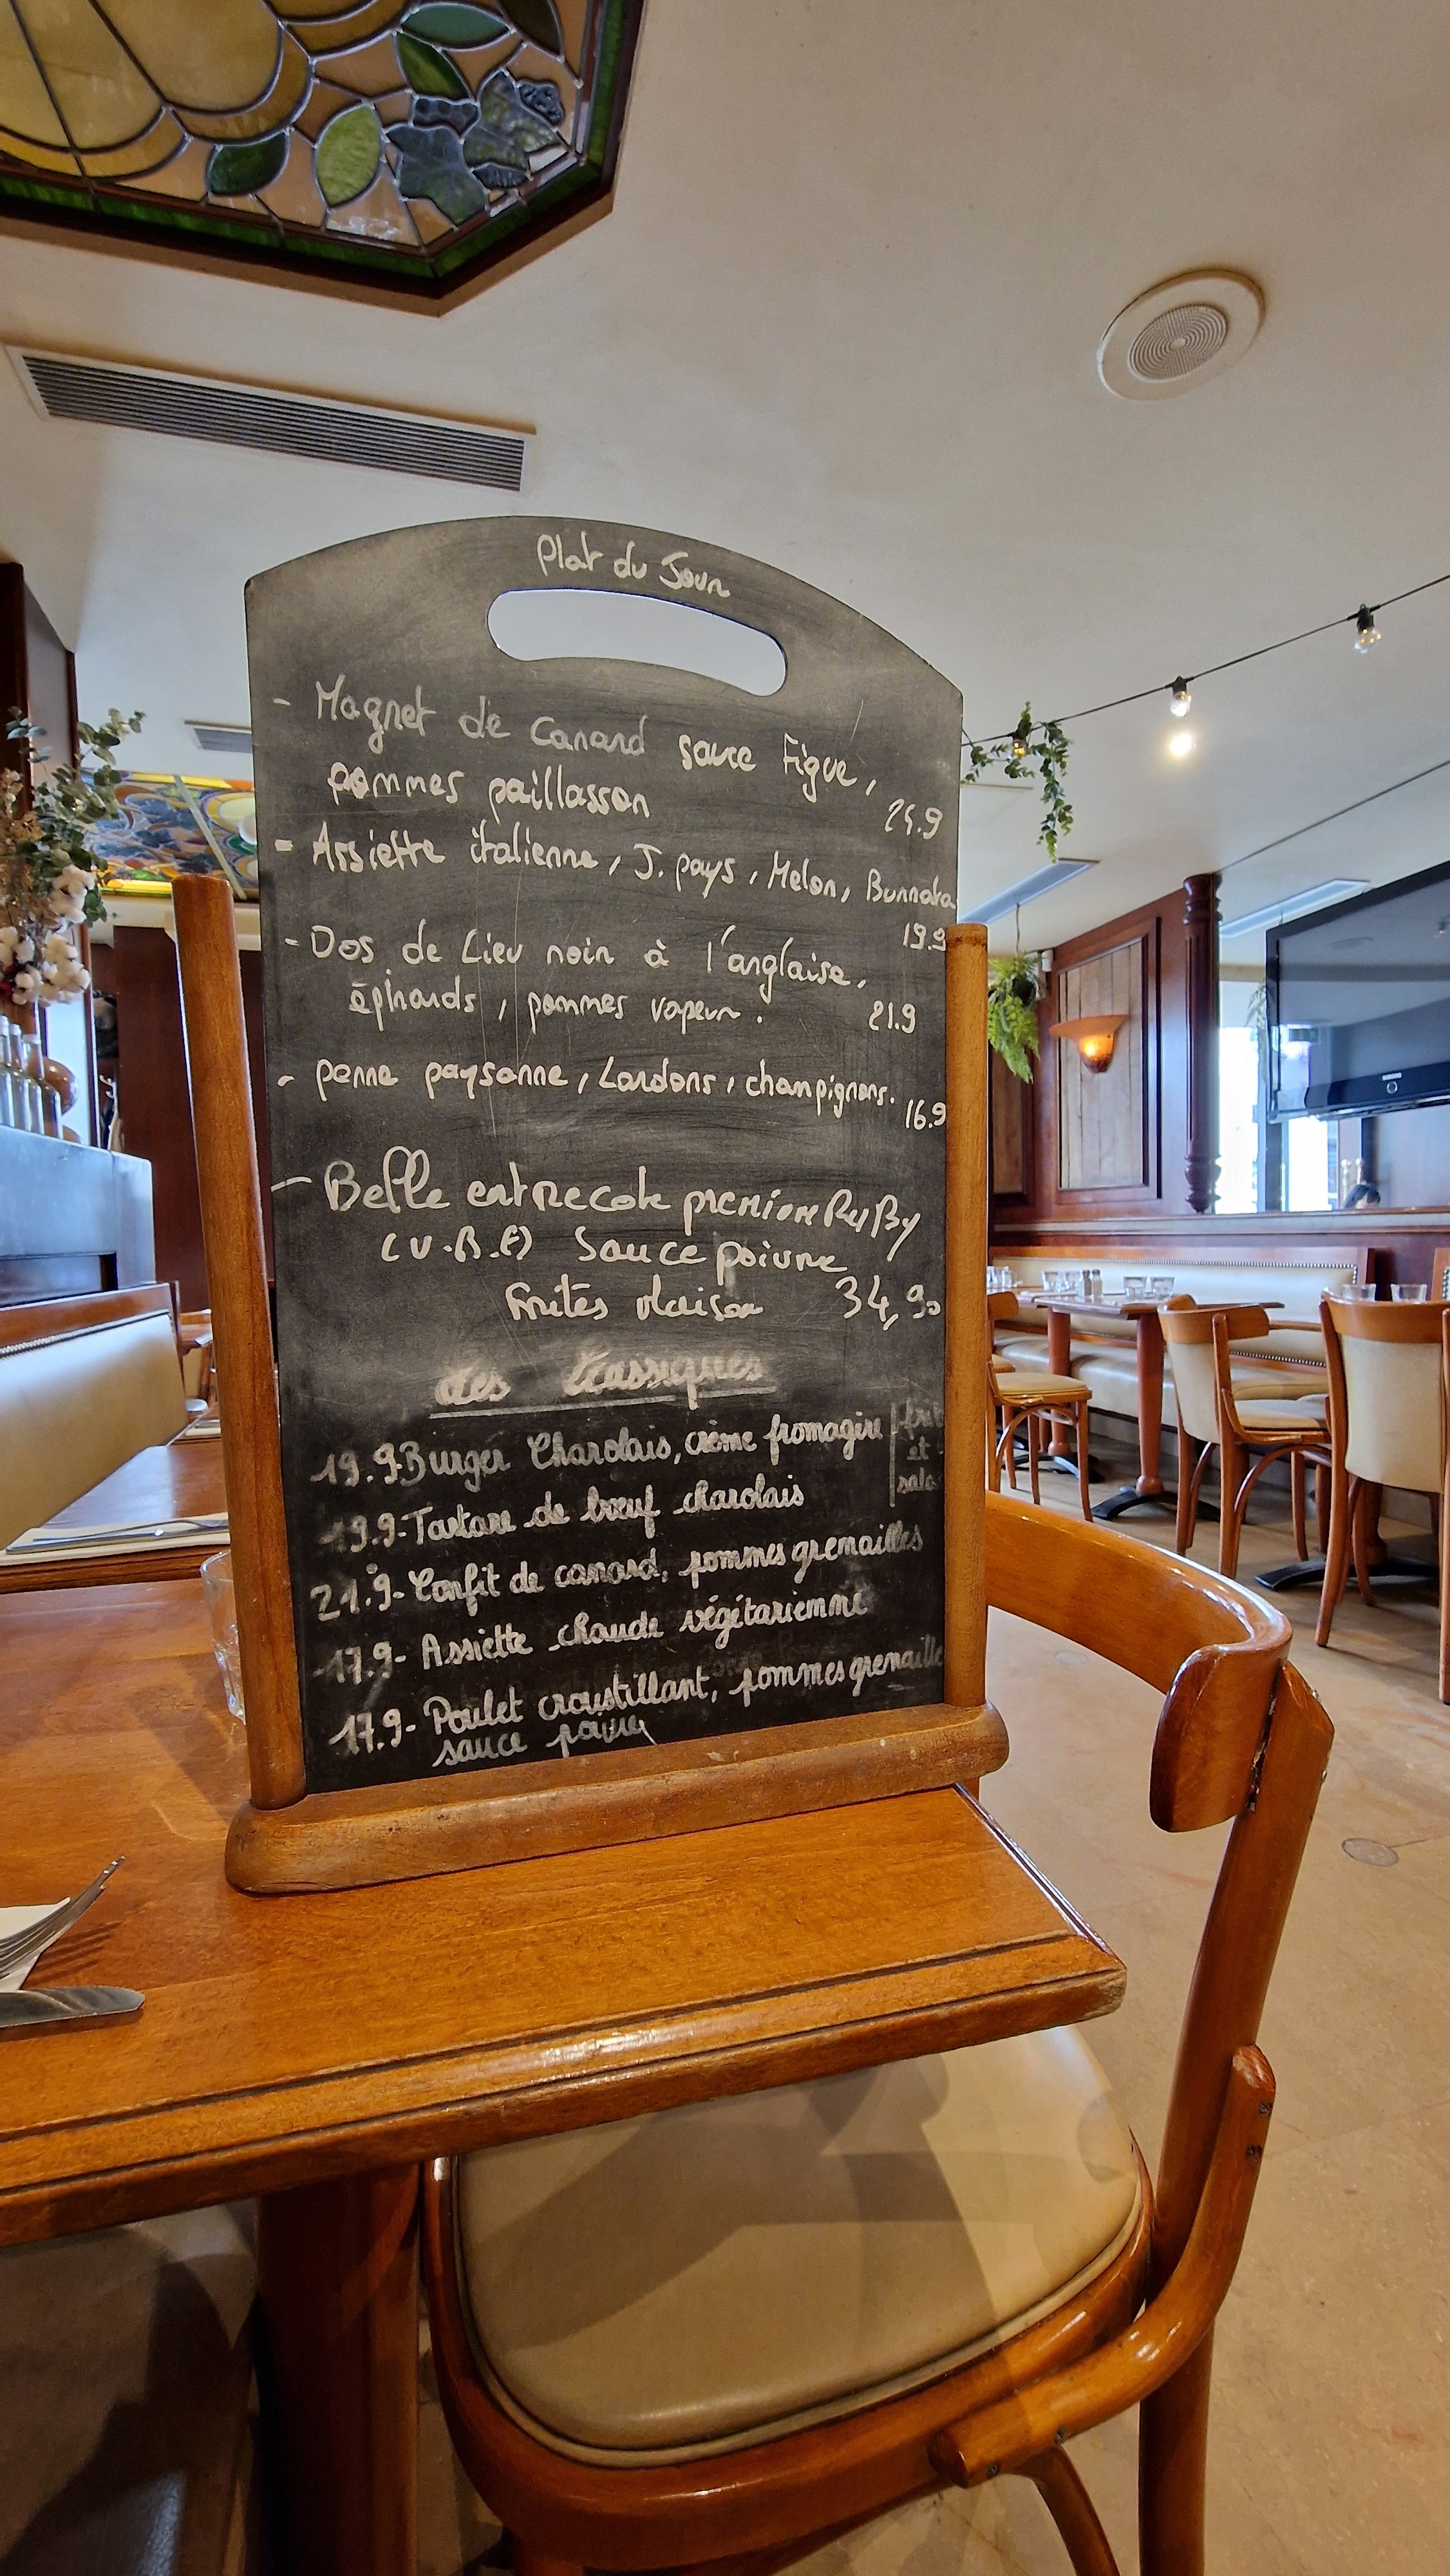 Plat du Jour
- Magret de Canard sauce Figue,
pommes paillasson 24.9
- Assiette italienne, J. pays, Melon, Burrata
19.9
- Dos de Lieu noir à l'anglaise,
épinards, pommes vapeur. 21.9
- penne paysanne, Lardons, champignons.
16.9
- Belle entrecote premiere RuBy
(V.B.F) Sauce poivre
frites Maison 34,90
Les Classiques
19.9 Burger Charolais, crème fromagère
et
19.9- Tartare de bœuf charolais
21.9- Confit de canard, pommes grenailles
17.9- Assiette chaude végétarienne
17.9- Poulet croustillant, pommes grenaille
sauce poivre